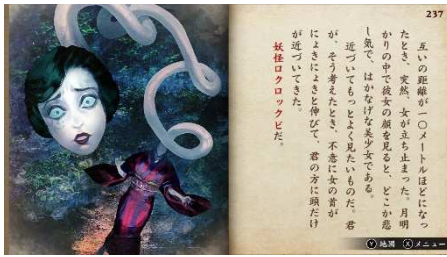 237
互いの距離が一〇メートルほどになっ
たとき、突然、女が立ち止まった。月明
かりの中で彼女の顔を見ると、どこか悲
し気で、はかなげな美少女である。
近づいてもっとよく見たいものだ。君
が、そう考えたとき、不意に女の首が
にょきにょきと伸びて、君の方に頭だけ
が近づいてきた。
妖怪ロクロックビだ。
Y 地図 X メニュー